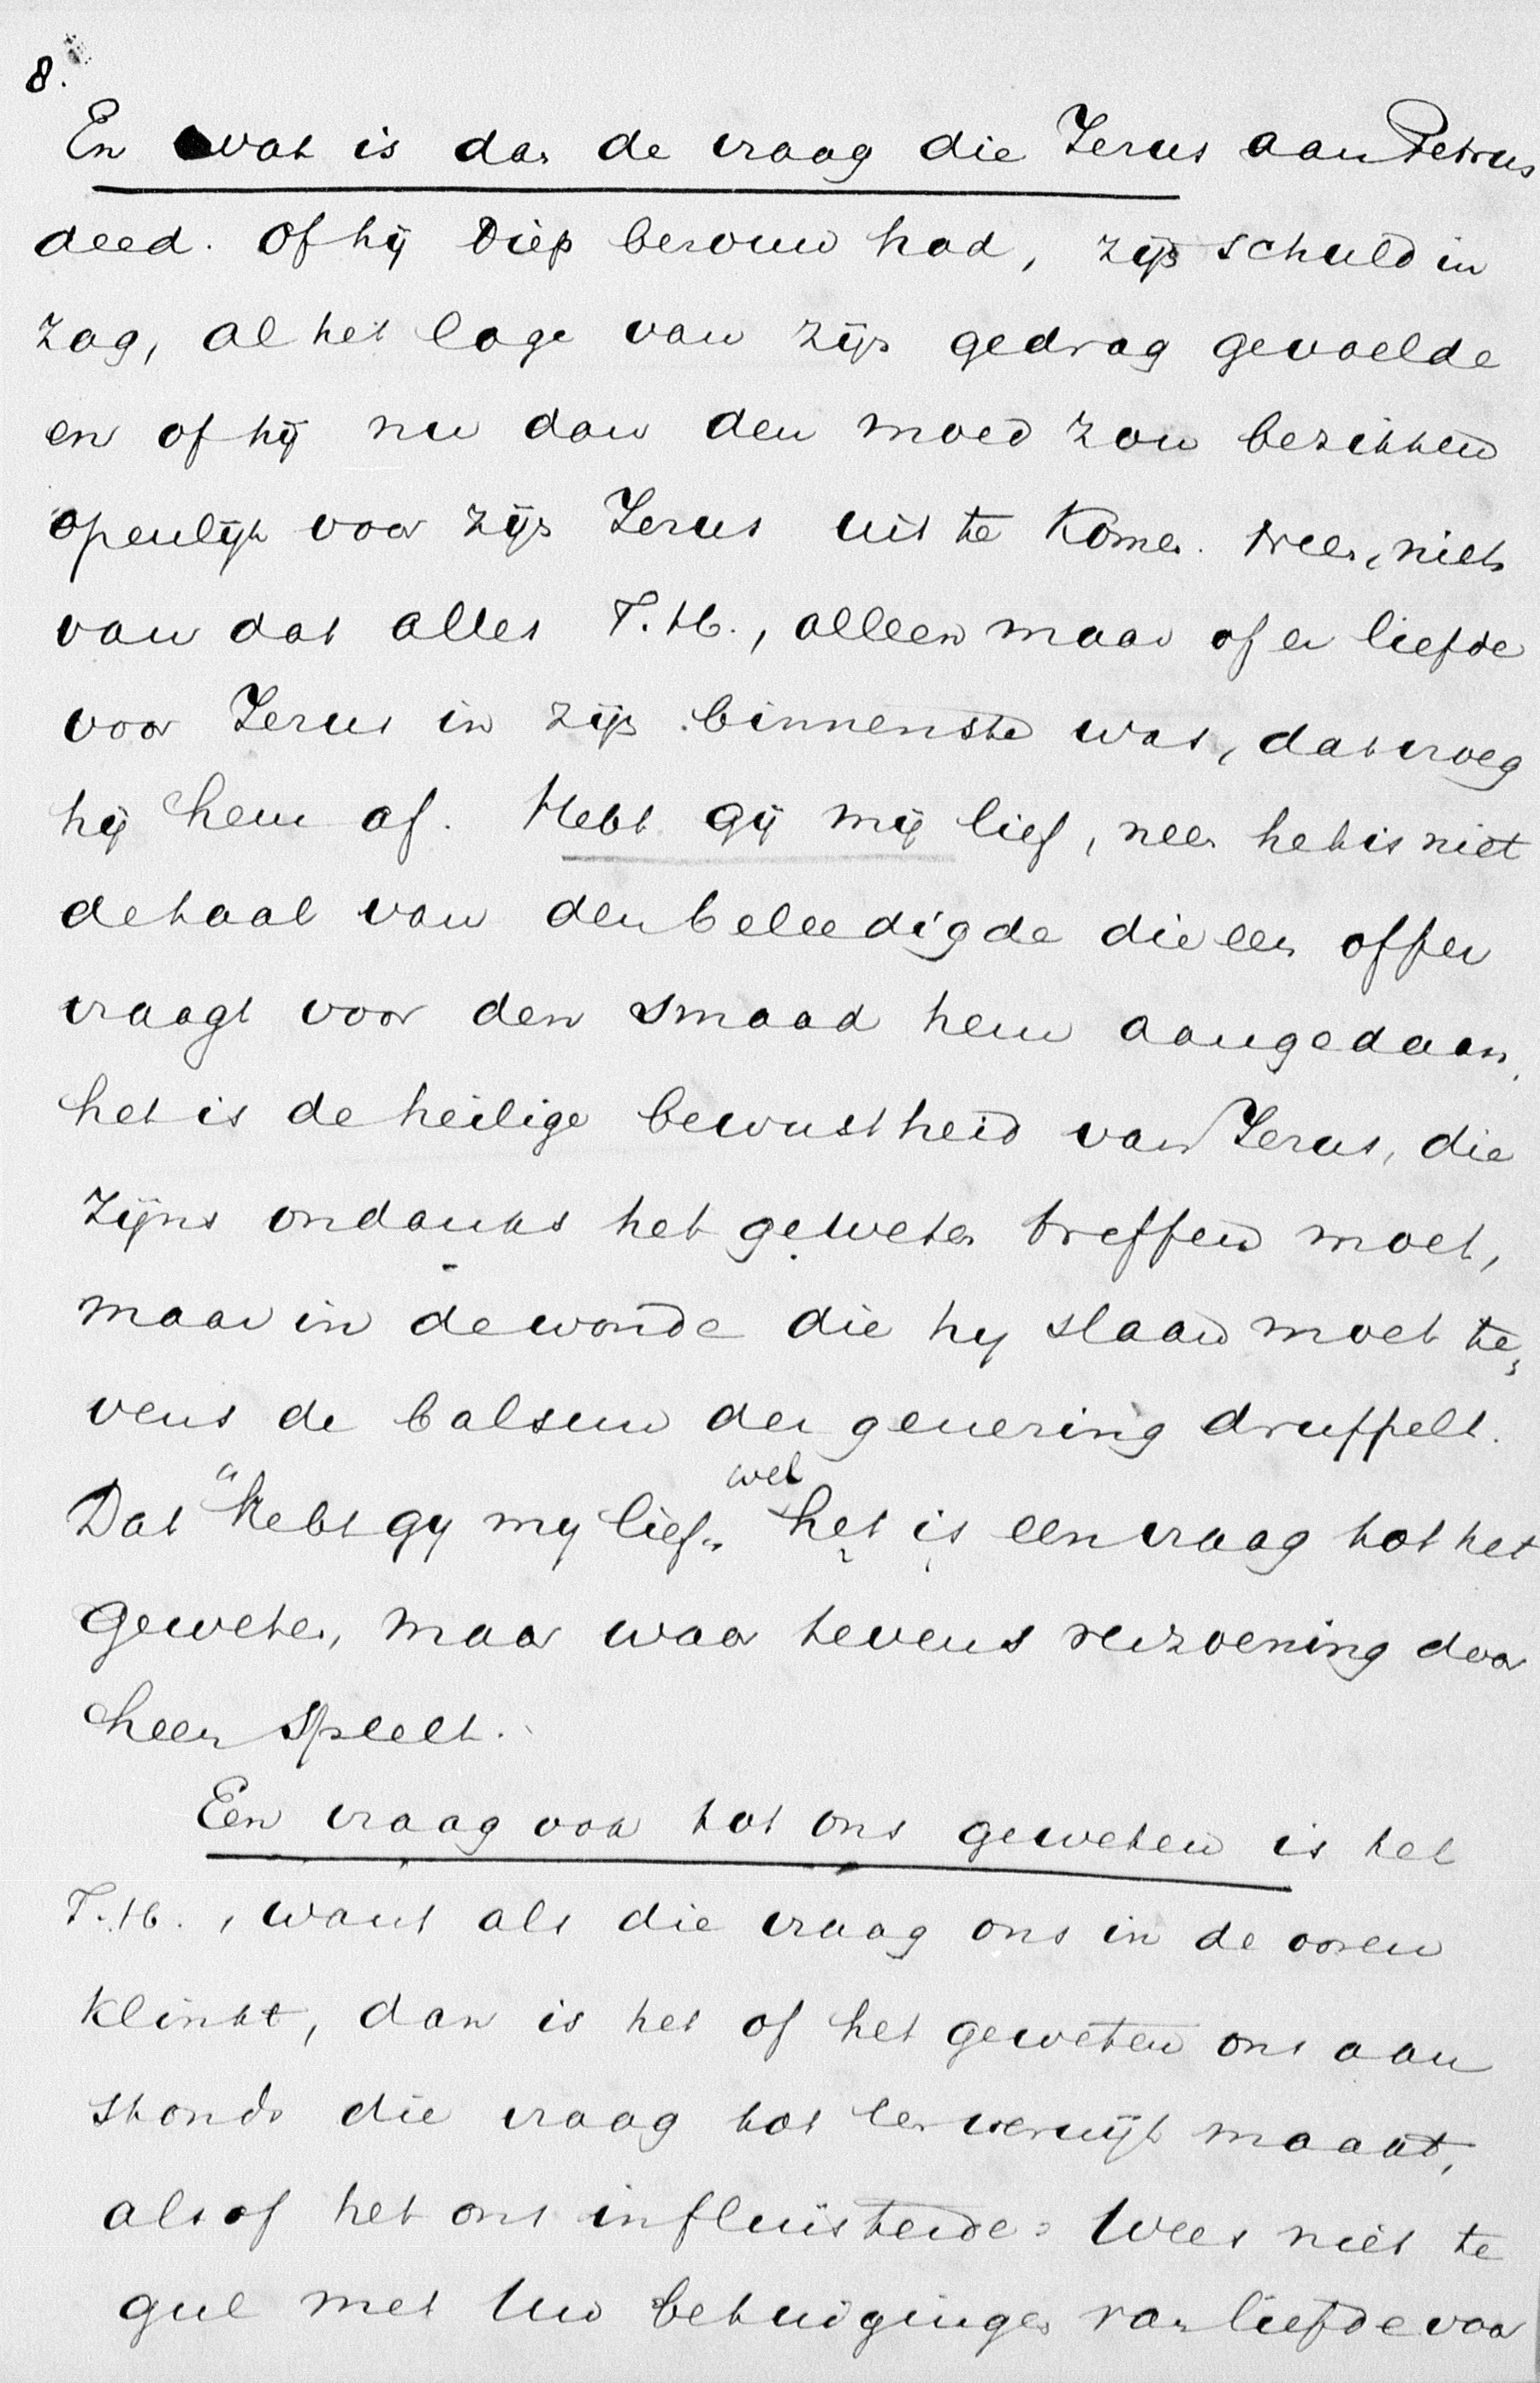 8.
En wat is dan de vraag die Jezus aan Petrus
deed. Of hij diep berouw had, zijn schuld in
zag, al het lage van zijn gedrag gevoelde
en of hij nu dan den moed zou bezitten
openlijk voor zijn Jezus uit te komen. Neen, niets
van dat alles T.H., alleen maar of er liefde
voor Jezus in zijn binnenste was, dat vroeg
hij hem af. Hebt gij mij lief, neen het is niet
de taal van den beleedigde die een offer
vraagt voor den smaad hem aangedaan,
het is de heilige bewustheid van Jezus, die
zijns ondanks het geweten treffen moet,
maar in de wonde die hy slaan moet te,
vens de balsem der genezing druppelt.
Dat "Hebt gy my lief" wel het is een vraag tot het
geweten, maar waar tevens verzoening door
heen speelt.
Een vraag ook tot ons geweten is het
T.H., want als die vraag ons in de ooren
klinkt, dan is het of het geweten ons aan
stonds die vraag tot een verwijt maakt,
alsof het ons influisterde: Wees niet te
gul met Uw betuigingen van liefde voor